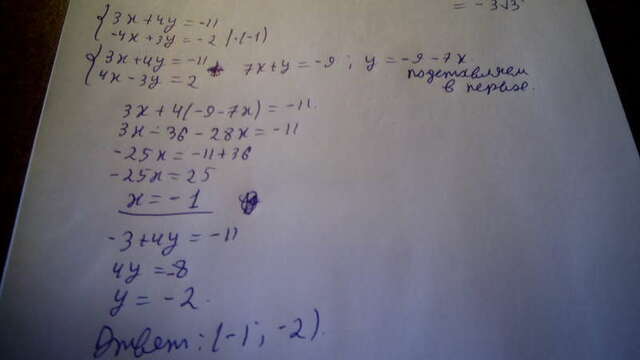 = -3√3
3x+4y=-11
-4x+3y=-2 |·(-1)
3x+4y=-11
4x-3y=2 + 7x+y=-9; y=-9-7x
подставляем
в первое.
3x+4(-9-7x)=-11.
3x-36-28x=-11
-25x=-11+36
-25x=25
x=-1
-3+4y=-11
4y=-8
y=-2.
Ответ: (-1; -2).